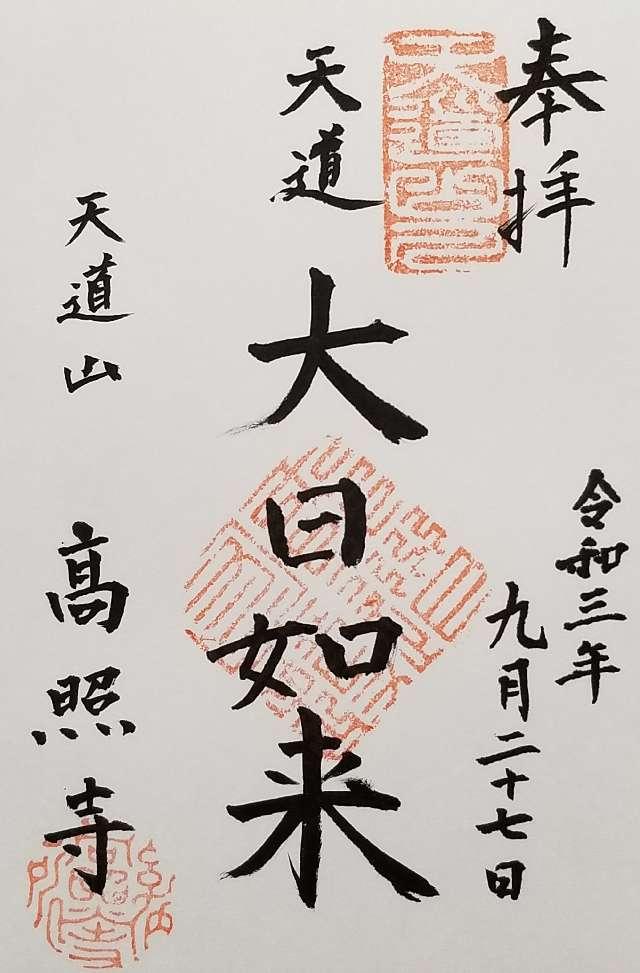 奉拝
令和三年
九月二十七日
天道山
天道
大日如来
天道山
高照寺